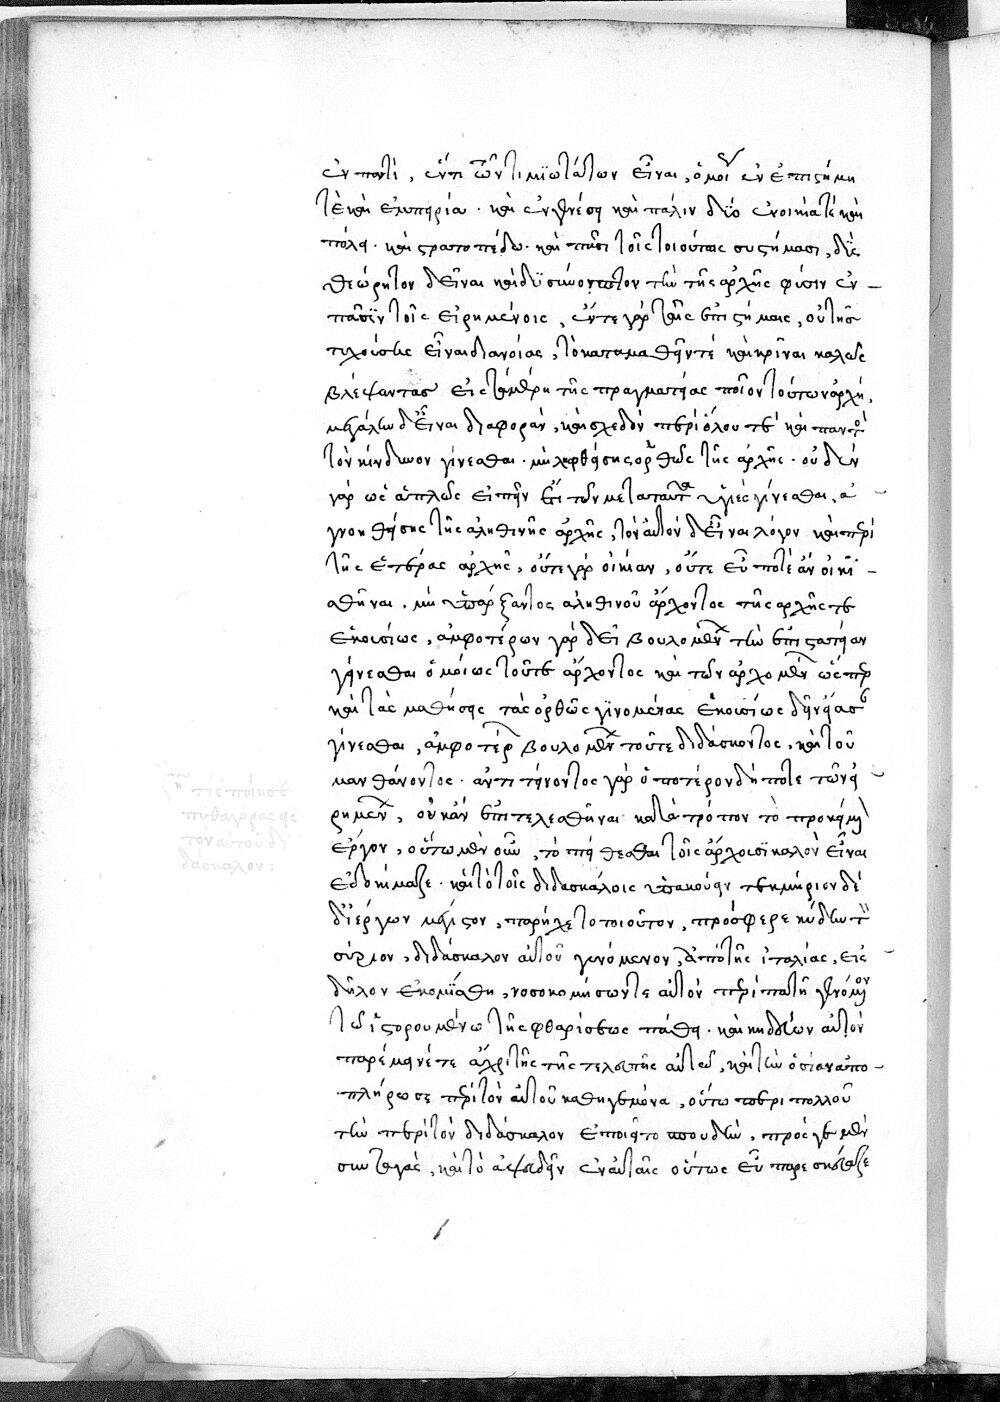 ἐν παντὶ, ἕν τι τῶν τιμιωτάτων εἶναι, ὁμοίως ἐν ἐπιστήμῃ
τὲ καὶ ἐμπειρία· καὶ ἐν γενέσει καὶ πάλιν δύο ἐν οἰκίᾳ τὲ καὶ
πόλει· καὶ στρατοπέδω· καὶ πᾶσι τοῖς τοιούτοις συστήμασι, δυσ
θεώρητον δεῖναι καὶ δυσύνοπτον τὴν τῆς ἀρχῆς φύσιν ἐν
πᾶσιν τοῖς εἰρημένοις, ἔν τε γὰρ ταῖς ἐπιστήμαις, οὐ τῆσ
τυχούσης εἶναι διανοίας, τὸ καταμαθεῖν τέ καὶ κρῖναι καλῶς
βλέψαντασ εἰς τὰ μέρη τῆς πραγματείας ποῖον τούτων ἀρχή,
μεγάλην δ' εἶναι διαφορὰν, καὶ σχεδὸν περὶ ὅλου τὲ καὶ παντὸς
τὸν κίνδυνον γίνεσθαι· μὴ ληφθείσης ὀρθῶς τῆς ἀρχῆς· οὐδὲν
γὰρ ὡς ἁπλῶς εἰπεῖν ἔτι τῶν μετὰ ταῦτα ὑγιὲς γίνεσθαι, ἀ
γνοηθείσης τῆς ἀληθινῆς ἀρχῆς, τὸν αὐτὸν δ' εἶναι λόγον καὶ περὶ
τῆς ἑτέρας ἀρχῆς, οὔτε γὰρ οἰκίαν, οὔτε εὖ ποτὲ ἂν οἰκη
θῆναι, μὴ ὑπάρξαντος ἀληθινοῦ ἄρχοντος τῆς ἀρχῆς τε
ἑκουσίως, ἀμφοτέρων γὰρ δεῖ βουλομένων τὴν ἐπιστατείαν
γίνεσθαι ὁμοίως τοῦτε ἄρχοντος καὶ τῶν ἀρχομένων ὥσπερ
καὶ τὰς μαθήσεις τὰς ὀρθῶς γινομένας ἑκουσίως δεῖν ἔφασαν
γίνεσθαι, ἀμφοτέρων βουλομένων τοῦτε διδάσκοντος, καὶ τοῦ
μανθάνοντος· ἀντιτείνοντος γὰρ ὁποτέρου δήποτε τῶν εἰ
ρημένων, οὐκ ἂν ἐπιτελεσθῆναι κατὰ τρόπον τὸ προκείμενον
ἔργον, οὕτω μὲν οὖν, τὸ πείθεσθαι τοῖς ἄρχουσι καλὸν εἶναι
ἐδοκίμαζε· καὶ τὸ τοῖς διδασκάλοις ὑπακούειν τεκμήριον δὲ
δι' ἔργων μέγιστον, παρείχετο τοιοῦτον, πρὸς φερεκύδην τὸν
σύριον, διδάσκαλον αὐτοῦ γενόμενον, ἀπὸ τῆς ἰταλίας, εἰς
δῆλον ἐκομίσθη, νοσοκομήσων τε αὐτὸν περιπετῆ γενόμενον
τῶ ἱστορουμένω τῆς φθειριάσεως πάθει· καὶ κηδεύων αὐτὸν
παρέμεινέ τε ἄχρι τῆς τῆς τελευτῆς αὐτοῦ, καὶ τὴν ὁσίαν ἀπο
πλήρωσε περὶ τὸν αὐτοῦ καθηγεμόνα, οὕτω περὶ πολλοῦ
τὴν περὶ τὸν διδάσκαλον ἐποιεῖτο σπουδὴν, πρός γε μὲν
συνταγὰς, καὶ τὸ ἀψευδεῖν ἐν αὐταῖς οὕτως εὖ παρεσκεύαζε
πυθαγόρας εἰς
τὸν αὐτοῦ δι
δάσκαλον: